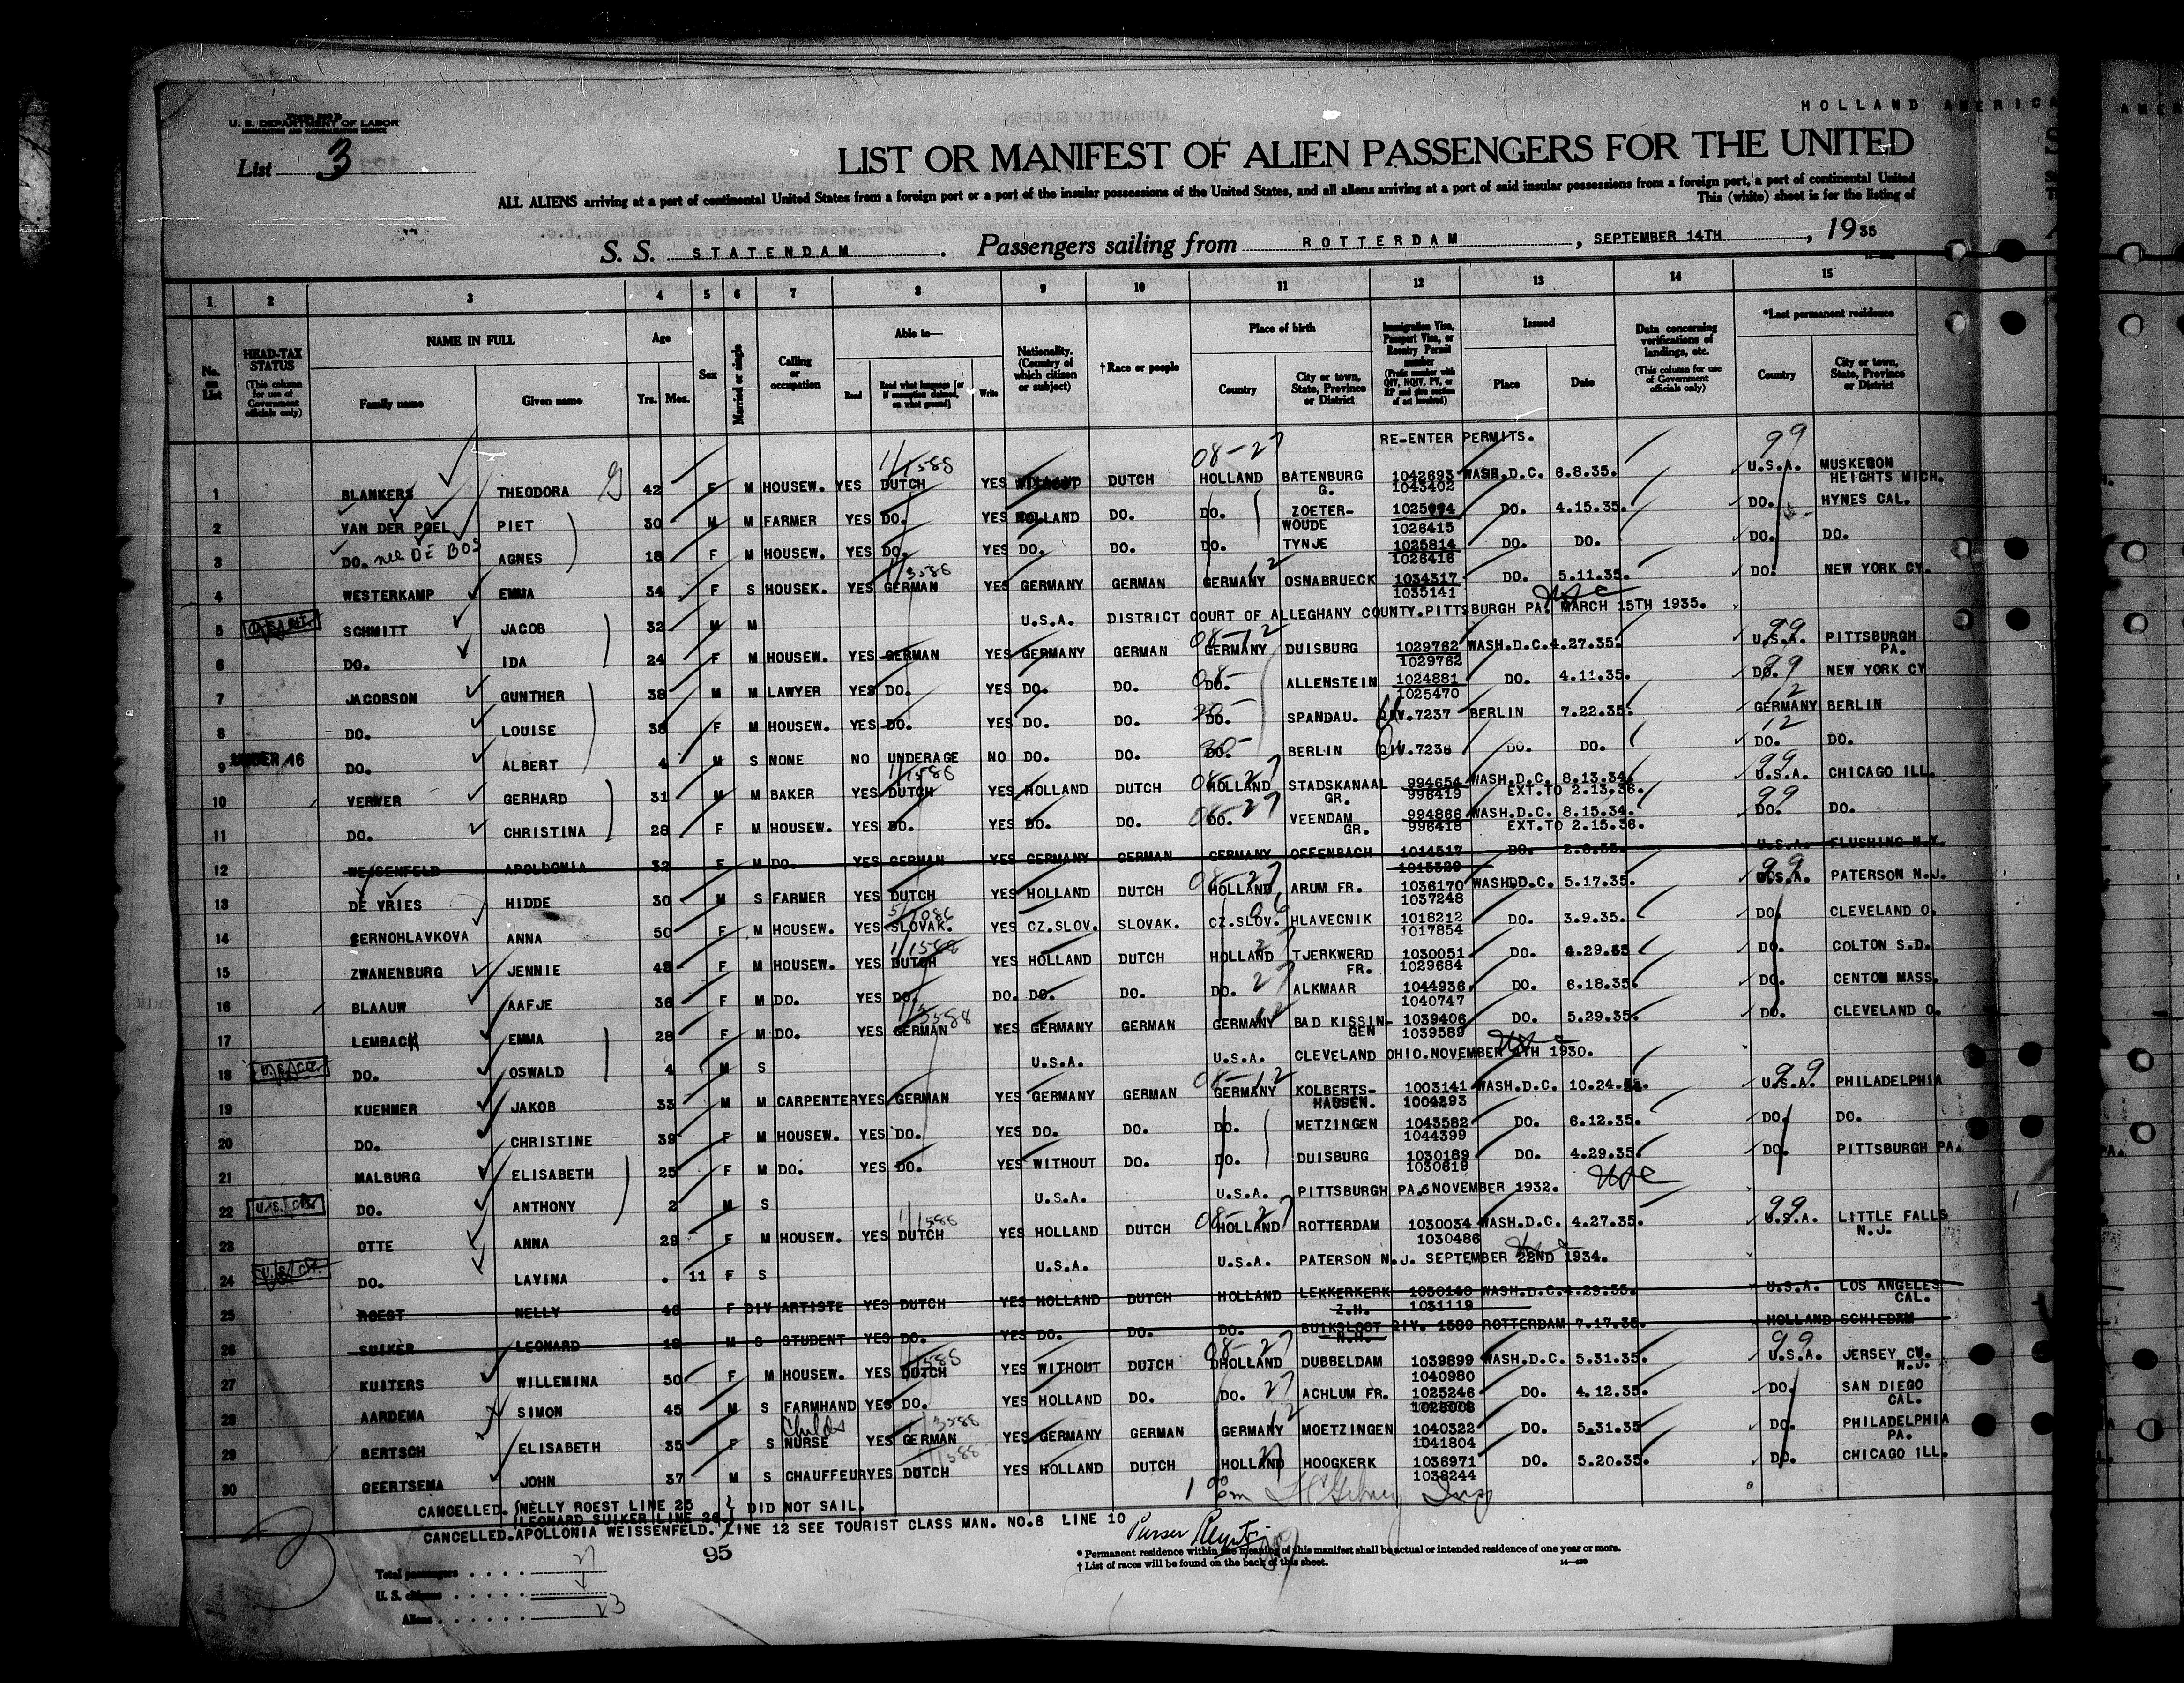 HOLLAND AMERICA
U. S. DEPARTMENT OF LABOR
IMMIGRATION AND NATURALIZATION SERVICE
List 3
LIST OR MANIFEST OF ALIEN PASSENGERS FOR THE UNITED
ALL ALIENS arriving at a port of continental United States from a foreign port or a port of the insular possessions of the United States, and all aliens arriving at a port of said insular possessions from a foreign port, a port of continental United
This (white) sheet is for the listing of
S. S. STATENDAM. Passengers sailing from ROTTERDAM, SEPTEMBER 14TH, 1935
1 2 3 4 5 6 7 8 9 10 11 12 13 14 15
No. on List
HEAD-TAX STATUS (This column for use of Government officials only)
NAME IN FULL
Family name Given name
Age Yrs. Mos.
Sex
Married or single
Calling or occupation
Able to—
Read Read what language [or if exemption claimed, on what ground] Write
Nationality. (Country of which citizen or subject)
†Race or people
Place of birth
Country City or town, State, Province or District
Immigration Visa, Passport Visa, or Reentry Permit number (Prefix number with QIV, NQIV, PV, or RP and give section of act involved)
Issued
Place Date
Data concerning verifications of landings, etc. (This column for use of Government officials only)
*Last permanent residence
Country City or town, State, Province or District
RE-ENTER PERMITS.
1 BLANKERS THEODORA 42 F M HOUSEW. YES DUTCH YES DUTCH HOLLAND BATENBURG G. 1042693 1043402 WASH.D.C. 6.8.35. U.S.A. MUSKEGON HEIGHTS MICH.
2 VAN DER POEL PIET 30 M M FARMER YES DO. YES HOLLAND DO. DO. ZOETER-WOUDE 1026415 DO. 4.15.35. DO. HYNES CAL.
3 DO. nee DE BOS AGNES 18 F M HOUSEW. YES DO. YES DO. DO. DO. TYNJE 1025814 1026416 DO. DO. DO. DO.
4 WESTERKAMP EMMA 34 F S HOUSEK. YES GERMAN YES GERMANY GERMAN GERMANY OSNABRUECK 1034317 1035141 DO. 5.11.35. DO. NEW YORK CY.
5 SCHMITT JACOB 32 M M U.S.A. DISTRICT COURT OF ALLEGHANY COUNTY.PITTSBURGH PA. MARCH 15TH 1935.
6 DO. IDA 24 F M HOUSEW. YES GERMAN YES GERMANY GERMAN GERMANY DUISBURG 1029762 1029762 WASH.D.C. 4.27.35. U.S.A. PITTSBURGH PA.
7 JACOBSON GUNTHER 38 M M LAWYER YES DO. YES DO. DO. DO. ALLENSTEIN 1024881 1025470 DO. 4.11.35. DO. NEW YORK CY
8 DO. LOUISE 38 F M HOUSEW. YES DO. YES DO. DO. DO. SPANDAU. QIV.7237 BERLIN 7.22.35. GERMANY BERLIN
9 UNDER 16 DO. ALBERT 4 M S NONE NO UNDERAGE NO DO. DO. DO. BERLIN QIV.7238 DO. DO. DO. DO.
10 VERWER GERHARD 31 M M BAKER YES DUTCH YES HOLLAND DUTCH HOLLAND STADSKANAAL GR. 994654 996419 WASH.D.C. 8.13.34. EXT.TO 2.13.36. U.S.A. CHICAGO ILL.
11 DO. CHRISTINA 28 F M HOUSEW. YES DO. YES DO. DO. DO. VEENDAM GR. 994866 996418 WASH.D.C. 8.15.34. EXT.TO 2.15.36. DO. DO.
12 WEISSENFELD APOLLONIA 32 F M DO. YES GERMAN YES GERMANY GERMAN GERMANY OFFENBACH 1014517 DO. U.S.A. FLUSHING N.Y.
13 DE VRIES HIDDE 30 M S FARMER YES DUTCH YES HOLLAND DUTCH HOLLAND ARUM FR. 1036170 1037248 WASHDD.C. 5.17.35. U.S.A. PATERSON N.J.
14 CERNOHLAVKOVA ANNA 50 F M HOUSEW. YES SLOVAK. YES CZ.SLOV. SLOVAK. CZ.SLOV. HLAVECNIK 1018212 1017854 DO. 3.9.35. DO. CLEVELAND O.
15 ZWANENBURG JENNIE 48 F M HOUSEW. YES DUTCH YES HOLLAND DUTCH HOLLAND TJERKWERD FR. 1030051 1029684 DO. 4.29.35 DO. COLTON S.D.
16 BLAAUW AAFJE 36 F M DO. YES DO. DO. DO. DO. DO. ALKMAAR 1044936 1040747 DO. 6.18.35. DO. CENTOM MASS.
17 LEMBACH EMMA 28 F M DO. YES GERMAN YES GERMANY GERMAN GERMANY BAD KISSIN-GEN 1039406 1039589 DO. 5.29.35. DO. CLEVELAND O.
18 U.S. CIT. DO. OSWALD 4 M S U.S.A. U.S.A. CLEVELAND OHIO.NOVEMBER 4TH 1930.
19 KUEHNER JAKOB 33 M M CARPENTER YES GERMAN YES GERMANY GERMAN GERMANY KOLBERTS-HAUSEN. 1003141 1004293 WASH.D.C. 10.24. U.S.A. PHILADELPHIA
20 DO. CHRISTINE 39 F M HOUSEW. YES DO. YES DO. DO. DO. METZINGEN 1043582 1044399 DO. 6.12.35. DO. DO.
21 MALBURG ELISABETH 25 F M DO. YES DO. YES WITHOUT DO. DO. DUISBURG 1030189 1030619 DO. 4.29.35. DO. PITTSBURGH PA.
22 U.S. CIT. DO. ANTHONY 2 M S U.S.A. U.S.A. PITTSBURGH PA.6NOVEMBER 1932.
23 OTTE ANNA 29 F M HOUSEW. YES DUTCH YES HOLLAND DUTCH HOLLAND ROTTERDAM 1030034 1030486 WASH.D.C. 4.27.35. U.S.A. LITTLE FALLS N.J.
24 U.S. CIT. DO. LAVINA . 11 F S U.S.A. U.S.A. PATERSON N.J. SEPTEMBER 22ND 1934.
25 ROEST NELLY F DIV ARTISTE YES DUTCH YES HOLLAND DUTCH HOLLAND LEKKERKERK Z.H. 1030140 1031119 WASH.D.C. 4.29.35. U.S.A. LOS ANGELES CAL.
26 SUIKER LEONARD M S STUDENT YES DO. YES DO. DO. DO. BUIKSLOOT N.H. QIV. 1589 ROTTERDAM 7.17.35. HOLLAND SCHIEDAM
27 KUITERS WILLEMINA 50 F M HOUSEW. YES DUTCH YES WITHOUT DUTCH DHOLLAND DUBBELDAM 1039899 1040980 WASH.D.C. 5.31.35. U.S.A. JERSEY CY. N.J.
28 AARDEMA SIMON 45 M S FARMHAND YES DO. YES HOLLAND DO. DO. ACHLUM FR. 1025246 DO. 4.12.35. DO. SAN DIEGO CAL.
29 BERTSCH ELISABETH 35 F S Childs NURSE YES GERMAN YES GERMANY GERMAN GERMANY MOETZINGEN 1040322 1041804 DO. 5.31.35 DO. PHILADELPHIA PA.
30 GEERTSEMA JOHN 37 M S CHAUFFEUR YES DUTCH YES HOLLAND DUTCH HOLLAND HOOGKERK 1036971 1038244 DO. 5.20.35. DO. CHICAGO ILL.
CANCELLED. {NELLY ROEST LINE 25
{LEONARD SUIKER LINE 26.} DID NOT SAIL.
CANCELLED.APOLLONIA WEISSENFELD. LINE 12 SEE TOURIST CLASS MAN. NO.6 LINE 10
Purser
95
* Permanent residence within the meaning of this manifest shall be actual or intended residence of one year or more.
† List of races will be found on the back of this sheet.
Total passengers
U. S. citizens
Aliens